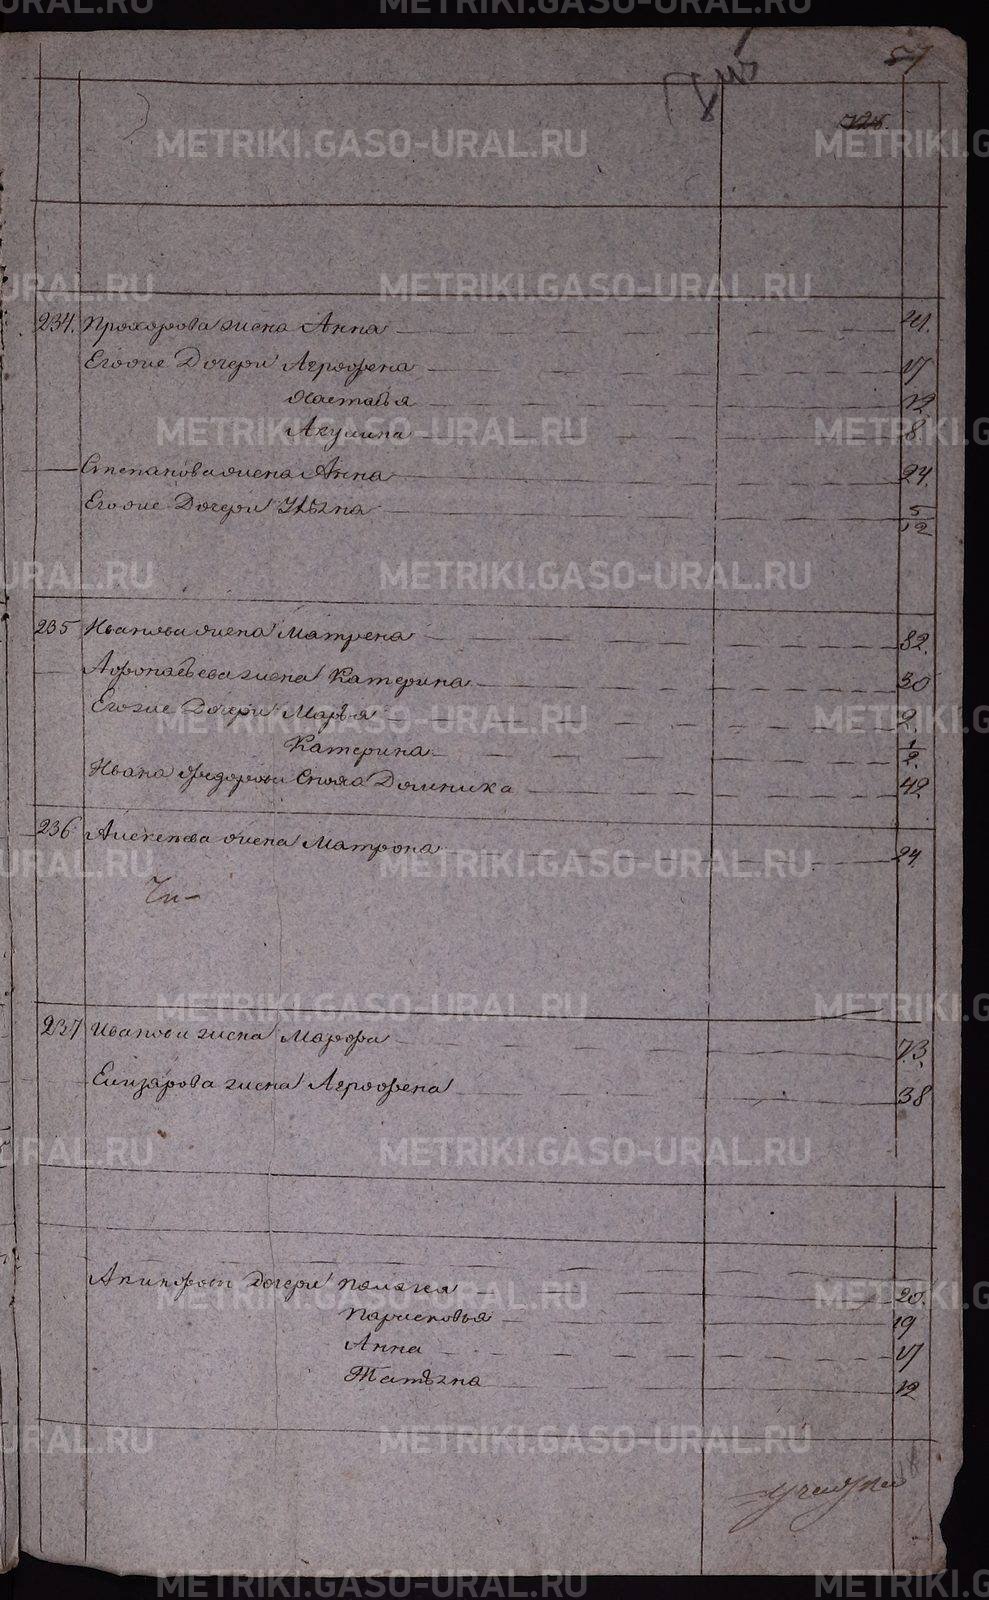 57
728.
234. Прохорова жена Анна 41.
Егоже Дочери Агрофена 17
Настасья 12
Акулина 8.
Степанова жена Анна 24.
Егоже Дочери Ульяна 5/12
235 Иванова жена Матрена 82.
Афонасьева жена Катерина 30
Егоже Дочери Марья 2.
Катерина 1/2.
Ивана Федорова Сноха Домника 42.
236 Алексеева жена Матрона 24.
237 Иванова жена Марфа 73.
Елизарова жена Агрофена 38
Дочери Пелагея 20.
Парасковья 19
Анна 17
Татьяна 12
METRIKI.GASO-URAL.RU